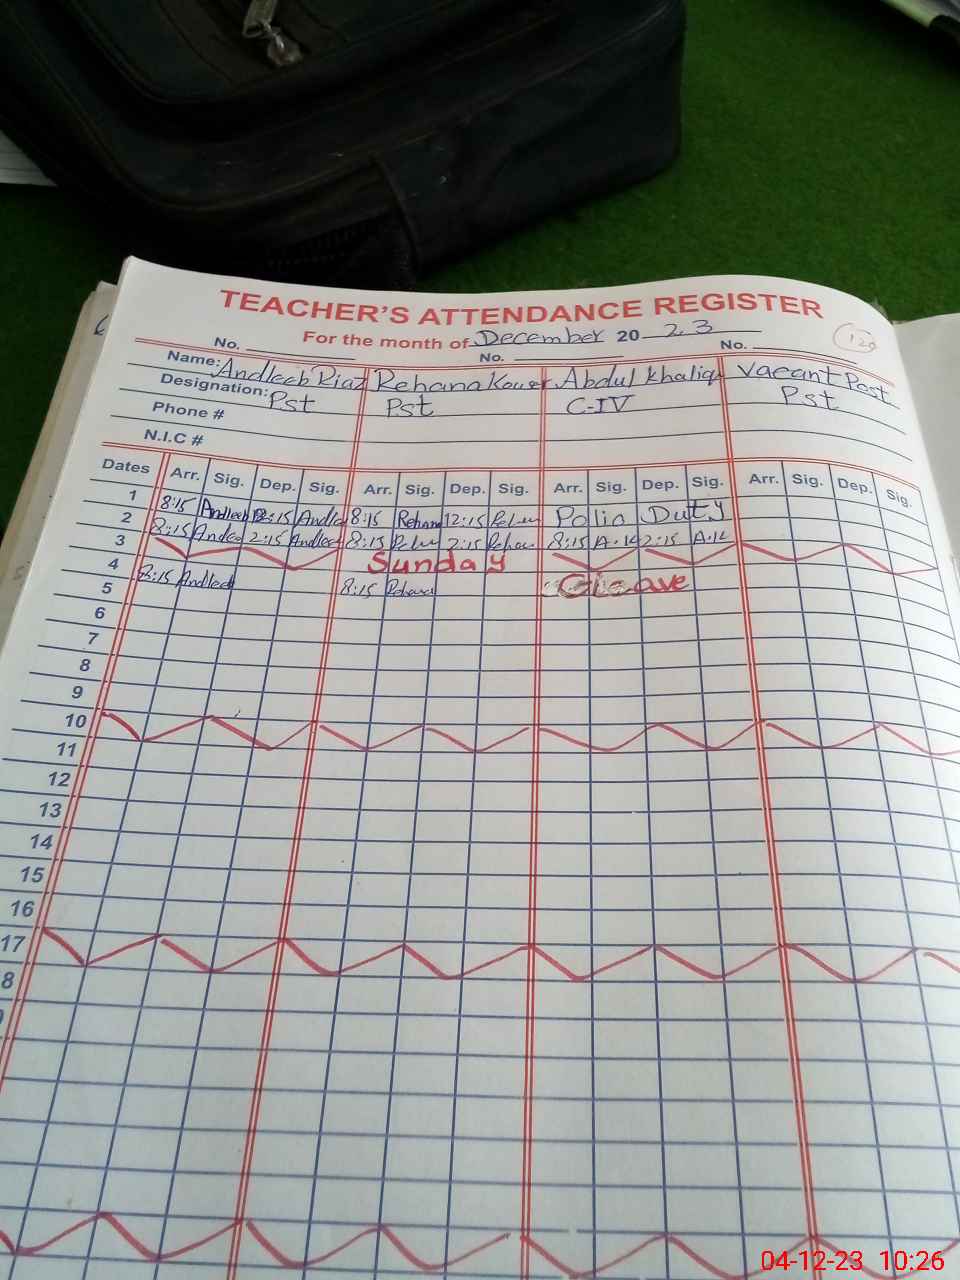 TEACHER'S ATTENDANCE REGISTER
For the month of December 20 23
No. No. No. 120
Name: Andleeb Riaz Rehana Kouser Abdul khaliq Vacant Post
Designation: Pst Pst C-IV Pst
Phone #
N.I.C #
Dates Arr. Sig. Dep. Sig. Arr. Sig. Dep. Sig. Arr. Sig. Dep. Sig. Arr. Sig. Dep. Sig.
1 8:15 Andleeb 12:15 Andlee 8:15 Rehana 12:15 Polio Duty
2 8:15 Andlee 2:15 Andleeb 8:15 2:15 Rehan 8:15 A.K 2:15 A.K
3 Sunday
4 8:15 Andleeb 8:15 Rehana leave
5
6
7
8
9
10
11
12
13
14
15
16
17
8
04-12-23 10:26